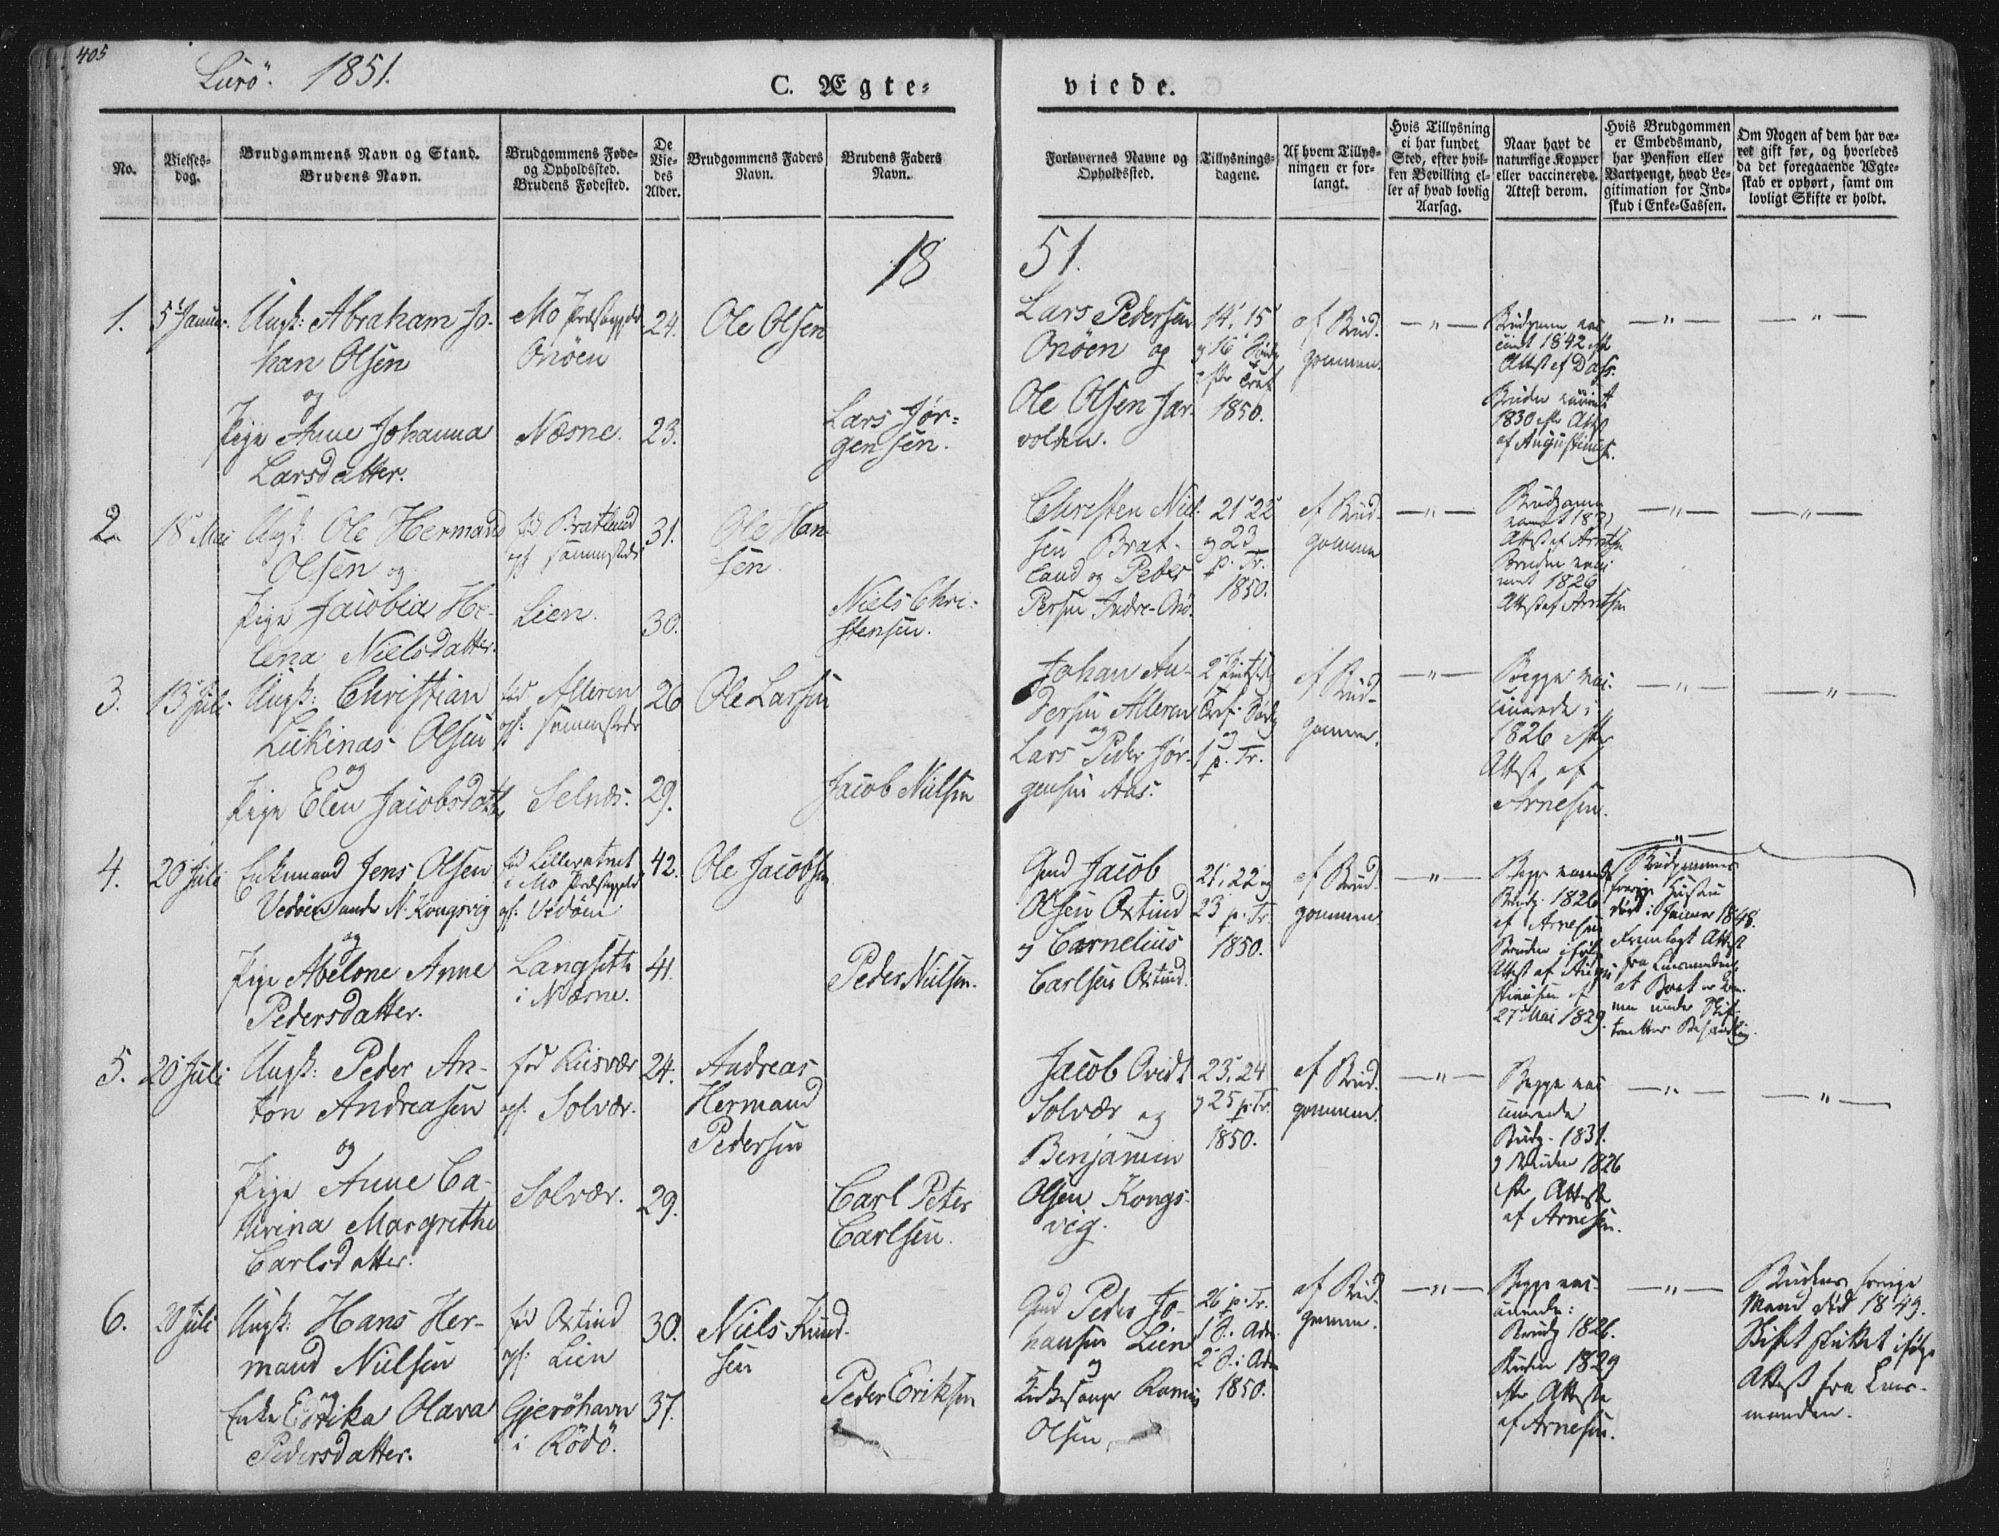 405
Lurö. 1851.
C. Ægte=
viede.
No.
Vielses-
dag.
Brudgommens Navn og Stand.
Brudens Navn.
Brudgommens Føde-
og Opholdssted.
Brudens Fødested.
De
Vie-
des
Alder.
Brudgommens Faders
Navn.
Brudens Faders
Navn.
Forlovernes Navne og
Opholdssted.
Tillysnings-
dagene.
Af hvem Tillys-
ningen er for-
langt.
Hvis Tillysning
ei har fundet
Sted, efter hvil-
ken Bevilling el-
ler af hvad lovlig
Aarsag.
Naar havt de
naturlige Kopper
eller vaccinerede.
Attest derom.
Hvis Brudgommen
er Embedsmand,
har Pension eller
Vartpenge, hvad Le-
gitimation for Ind-
skud i Enke-Cassen.
Om Nogen af dem har væ-
ret gift før, og hvorledes
da det foregaaende Ægte-
skab er ophørt, samt om
lovligt Skifte er holdt.
18
51.
1.
5 Januar.
Ungk: Abraham Jo-
han Olsen
og
Pige Anne Johanna
Larsdatter.
Mo Præstegjeld
Onöen
Næsne.
24.
23.
Ole Olsen
Lars Jør=
gensen.
Lars Pedersen
Onöen og
Ole Olsen Jar-
volden.
14, 15
og 16 Söndg
efter Tref
1850.
af Brud-
gommen.
— " —
Brudgom vac
cinet 1842 eft
Attest af Dass.
Bruden vaccinet
1830 eftr Attest
af Augustinus.
— " —
— " —
2.
18 Mai
Ungk. Ole Hermand
Olsen og
Pige Jacobia He-
lena Nielsdatter.
fød Bratland
oph sammesteds
Lien.
31.
30.
Ole Han
sen.
Niels Chri-
stensen.
Christen Niel-
sen Brat-
land og Peder
Persen Indre-Onö.
21 22
og 23
p. Tr.
1850.
af Brud-
gommen
— " —
Attest af Arntsen
Bruden vacci
neret 1826
Attest af Arntsen
— " —
— " —
3.
13 Juli
Ungk: Christian
Lukinas Olsen
og
Pige Elen Jacobsdatt
fød Alleren
oph: sammesteds
Selnæs.
26
29.
Ole Larsen
Jacob Nielsen
Johan An-
dersen Alleren
og
Lars Peder Jør-
gensen Aas.
og
1 p. Tr.
af Brud-
gommen.
— " —
Begge vac-
cinerede i
1826 efter
Attest af
Arnesen.
— " —
— " —
4.
20 Juli
Enkemand Jens Olsen
Vedöen andr N. Kongsvig
og
Pige Abelone Anne
Pedersdatter.
fød Lillevatnet
i Mo Præstegjeld
oph: Vedöen
Langsette
i Næsne.
42.
41.
Ole Jacobsen
Peder Nielsen.
Gmd Jacob
Olsen Oxtind
og Cornelius
Carlsen Oxtind.
21, 22 og
23 p. Tr.
1850.
af Brud-
gommen
— " —
Brudg. 1826
af Arnesen
27 Mai 1829.
"
Brudgommens
forrige Hustru
død i Januar 1848.
Fremlagt Attest
fra Lensmanden
at Boet er kom-
men under Skif-
terettens Behandling.
5.
20 Juli
Ungk: Peder An-
ton Andreasen
og
Pige Anne Ca-
thrina Margrethe
Carlsdatter.
fød Riisvær
oph: Solvær.
Solvær.
24.
29.
Andreas
Hermand
Pedersen
Carl Peter
Carlsen.
Jacob Ovidt
Solvær og
Benjamin
Olsen Kongs-
vig.
23, 24
og 25 p. Tr.
1850.
af Brud-
gommen.
— " —
Begge vac
cinerede
Brudg. 1831.
og Bruden 1826
eftr Attester
af Arnesen.
— " —
— " —
6.
20 Juli
Ungk: Hans Her-
mand Nielsen
og
Enke Erika Olava
Pedersdatter.
fød Oxtind
oph: Lien
Gjeröhavn
i Rödö.
30.
37.
Niels Knud-
sen
Peder Eriksen
Gmd Peder Jo-
hansen Lien
og
Kirkesanger Rasmus
Olsen
26 p. Tr.
1 S. Adv.
2 S. i Adv
1850.
af Brud-
gommen.
— " —
Begge vac-
cinerede:
Brudg 1826.
Bruden 1829
eftr Attester
af Arnesen.
— " —
Brudens forrige
Mand død 1849.
Skiftet sluttet ifølge
Attest fra Lens-
manden.